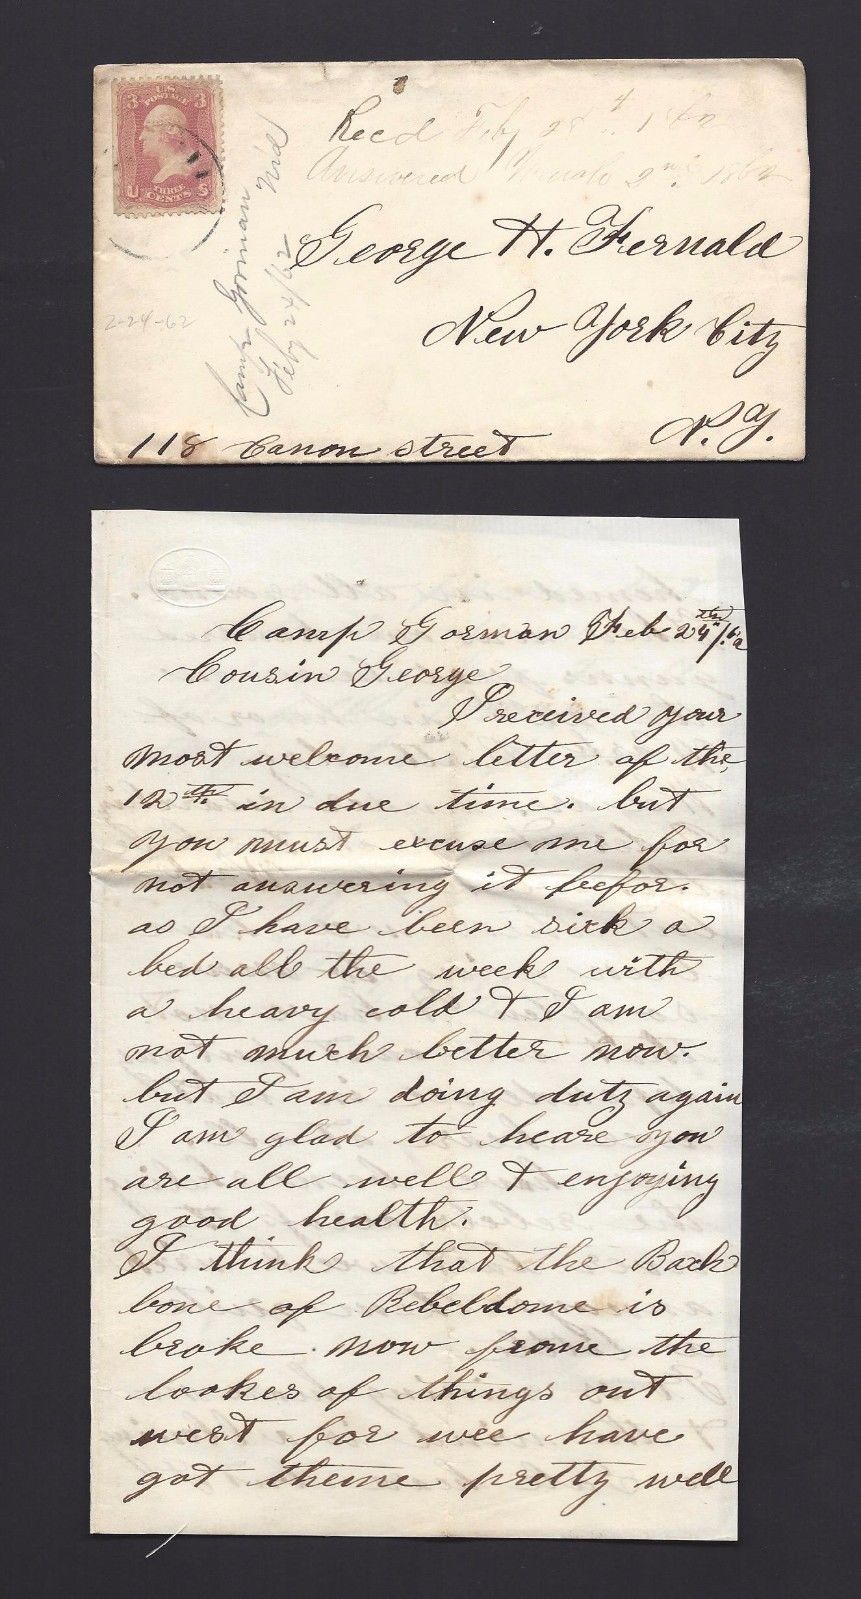 3 U.S. 3
POSTAGE
THREE
CENTS
U S
Recd Feby 28 1862
Answered March 2nd 1862
Camp Gorman Md
Feby 24/62
2-24-62
George H. Fernald
New York City
N.Y.
118 Canon street
Camp Gorman Feb 24th/62
Cousin George
I received your
most welcome letter of the
12th in due time. but
you must excuse me for
not answering it befor.
as I have been sick a
bed all the week with
a heavy cold & I am
not much better now.
but I am doing duty again
I am glad to heare you
are all well & enjoying
good health.
I think that the Back
bone of Rebeldome is
broke now frome the
lookes of things out
west for wee have
got theme pretty well